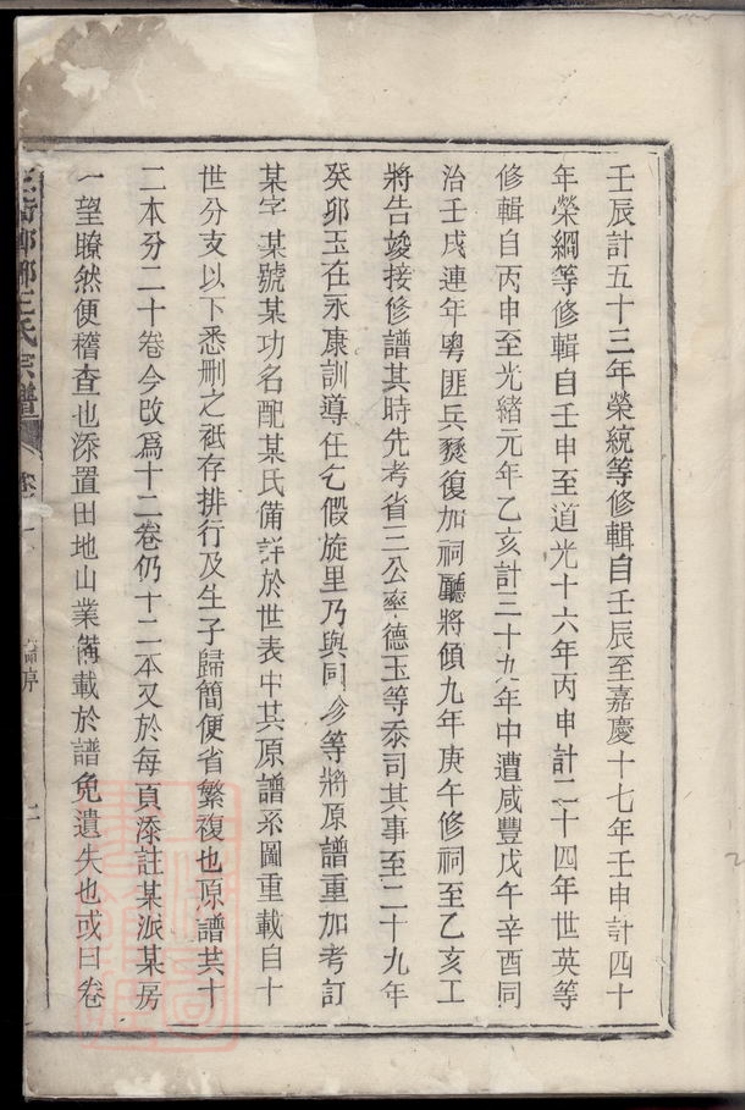 壬辰計五十三年榮統等修輯自壬辰至嘉慶十七年壬申計四十
年榮綱等修輯自壬申至道光十六年丙申計二十四年世英等
修輯自丙申至光緒元年乙亥計三十九年中遭咸豐戊午辛酉同
治壬戌連年粵匪兵燹復加祠廳將傾九年庚午修祠至乙亥工
將告竣接修譜其時先考省三公率德玉等忝司其事至二十九年
癸卯玉在永康訓導任乞假旋里乃與同彣等將原譜重加考訂
某字某號某功名配某氏備詳於世表中其原譜系圖重載自十
世分支以下悉刪之祗存排行及生子歸簡便省繁複也原譜共十
二本分二十卷今改爲十二卷仍十二本又於每頁添註某派某房
一望瞭然便稽查也添置田地山業備載於譜免遺失也或曰卷
王氏宗譜
序